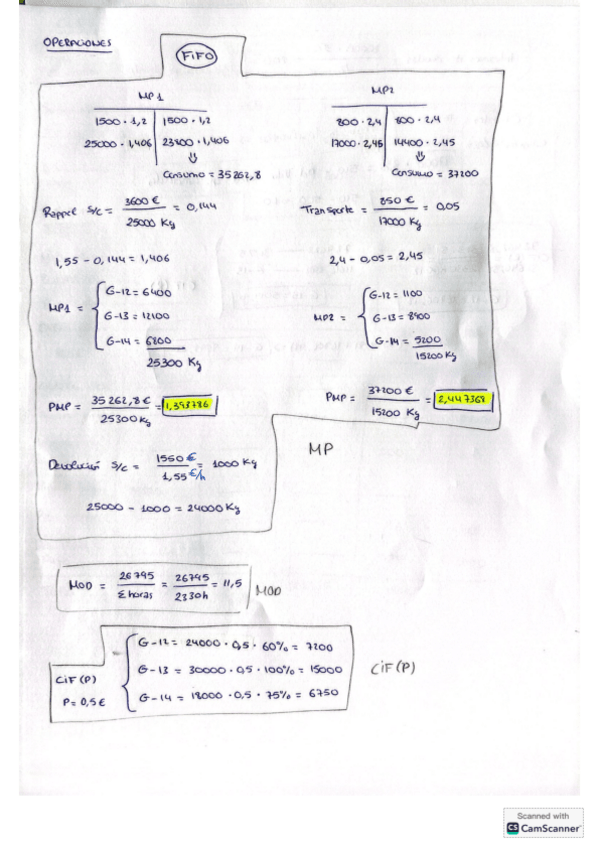 OPERACIONES
FiFO
MP1
1500 · 1,2 | 1500 · 1,2
25000 · 1,406 | 23800 · 1,406
⇓
Consumo = 35262,8
MP2
800 · 2,4 | 800 · 2,4
17000 · 2,45 | 14400 · 2,45
⇓
Consumo = 37200
Rappel s/c = 3600 € / 25000 Kg = 0,144
Transporte = 850 € / 17000 Kg = 0,05
1,55 - 0,144 = 1,406
2,4 - 0,05 = 2,45
MP1 = { G-12 = 6400
G-13 = 12100
G-14 = 6800
25300 Kg
MP2 = { G-12 = 1100
G-13 = 8900
G-14 = 5200
15200 Kg
PMP = 35262,8 € / 25300 Kg = 1,393786
PMP = 37200 € / 15200 Kg = 2,447368
MP
Devolución s/c = 1550 € / 1,55 €/h = 1000 Kg
25000 - 1000 = 24000 Kg
MOD = 26795 / Σ horas = 26795 / 2330h = 11,5
MOD
G-12 = 24000 · 0,5 · 60% = 7200
G-13 = 30000 · 0,5 · 100% = 15000
G-14 = 18000 · 0,5 · 75% = 6750
CiF (P)
P = 0,5 €
CiF (P)
Scanned with
CS CamScanner